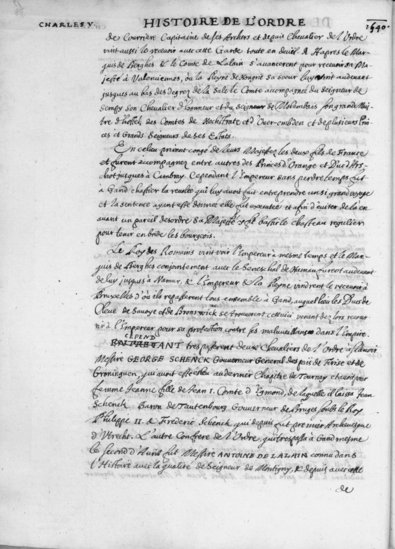 CHARLES V.
HISTOIRE DE L'ORDRE
1540.
de Courriere Capitaine de ses Archers et depuis Chevalier de l'Ordre
vint aussi le recevoir avec cette Garde toute en deüil & Hapres le Mar-
quis de Berghes & le Comte de Lalain s'avancerent pour recevoir sa Ma-
jesté à Valenciennes, où la Royne de Hongrie sa soeur luy vint audevant
jusques au bas des degrez de la sale le Comte accompagné du Seigneur de
sempy son Chevalier d'honneur et du seigneur de Molembais son grand Mais-
tre d'hostel, des Comtes de et d'Over-embden et de plusieurs Prin-
ces et Grands Seigneurs de ses Estats.
En ce lieu prirent congé de leurs Majestez les deux fils de France
et furent accompagnez entre autres des Princes d'Orange et Duc d'Ars-
chot jusques à Cambray. Cependant l'Empereur sans perdre temps fut
à Gand chastier la revolte qui luy avoit fait entreprendre un si grand voyage
et la sentence ayant esté devant elle fut executée et afin d'eviter de là en
avant un pareil desordre sa Majesté y fit bastir le chasteau regulier
pour tenir en bride les bourgeois.
Le Roy des Romains vint voir l'Empereur à mesme temps et le Mar-
quis de Berghes conjointement avec le Seneschal de Hainau furent audevant
de luy jusques à Namur, & l'Empereur & la Royne vindrent le recevoir à
Bruxelles d'où ils repasserent tous ensemble à Gand, auquel lieu les Ducs de
Cleves de Savoye et de Brunswick se trouverent cettuici venant de loin recour-
ir à l'Empereur pour sa protection contre ses malveillans dans l'Empire.
CEPENDANT trespasserent deux Chevaliers de l'Ordre à sçavoir
Messire GEORGE SCHENCK Gouverneur General des païs de Frise et de
Groninguen, qui avoit esté éleu au dernier Chapitre de Tournay et avoit eu pour
femme Jeanne fille de Jean I. Comte d'Egmond, de laquelle il laissa Jean
Schenck Baron de Tautenbourg Gouverneur de Bruges soubs le Roy
Philippe II. & Frederic Schenck, qui depuis fut premier Archevesque
d'Utrecht. L'autre Confrere de l'Ordre, qui trespassa à Gand mesme
le second d'Avril fut Messire ANTOINE DE LALAIN connu dans
l'Histoire avec la qualité de Seigneur de Montigny, & depuis avec celle
de